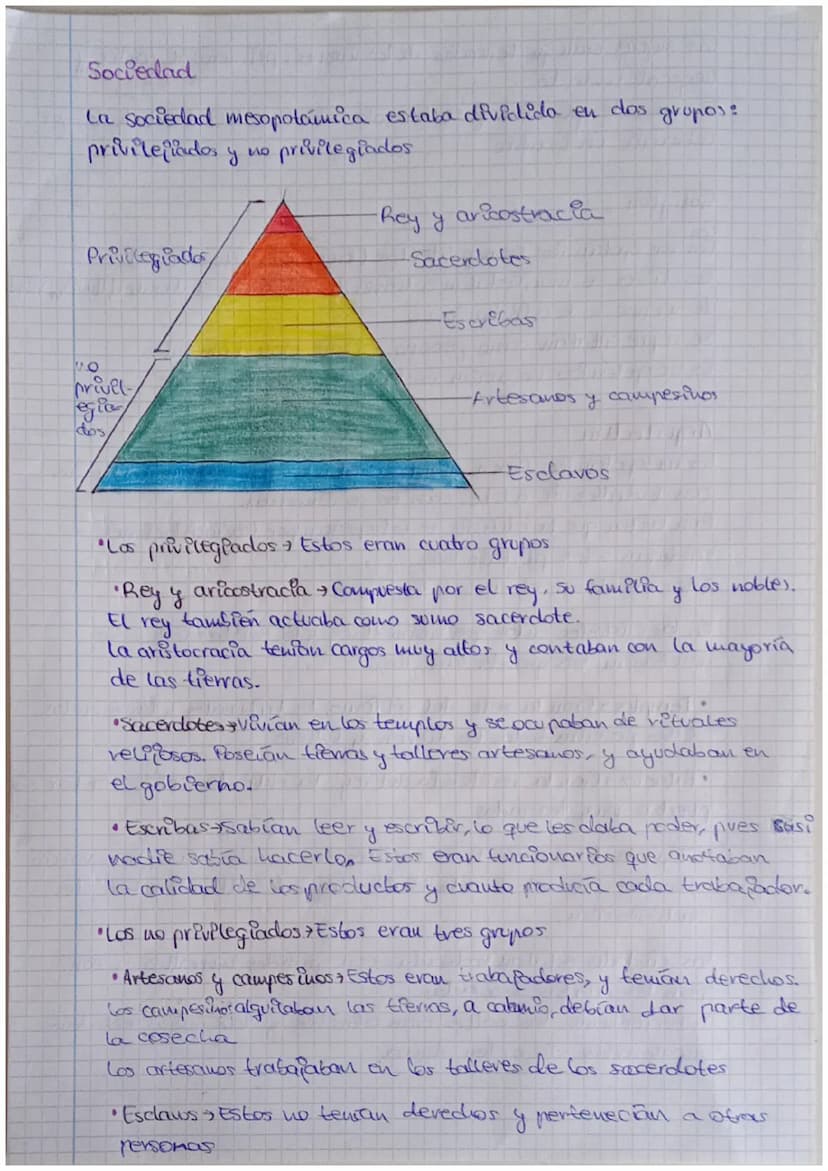 Sociedad
La sociedad mesopotámica estaba dividida en dos grupos:
privilegiados y no privilegiados
Rey y aricostracia
Privilegiados
Sacerdotes
Escribas
no
privil-
egia
dos
Artesanos y campesinos
Esclavos
•Los privilegiados → Estos eran cuatro grupos
•Rey y aricostracia → Compuesta por el rey, su familia y los nobles.
El rey también actuaba como sumo sacerdote.
La aristocracia tenían cargos muy altos y contaban con la mayoría
de las tierras.
•Sacerdotes → Vivían en los templos y se ocupaban de rituales
religiosos. Poseían tierras y talleres artesanos, y ayudaban en
el gobierno.
•Escribas → Sabían leer y escribir, lo que les daba poder, pues casi
nadie sabía hacerlo. Estos eran funcionarios que anotaban
la calidad de los productos y cuanto producía cada trabajador.
•Los no privilegiados → Estos eran tres grupos
•Artesanos y campesinos → Estos eran trabajadores, y tenían derechos.
Los campesinos alquilaban las tierras, a cabmio, debían dar parte de
la cosecha
Los artesanos trabajaban en los talleres de los sacerdotes
•Esclavos → Estos no tenían derechos y pertenecían a otras
personas